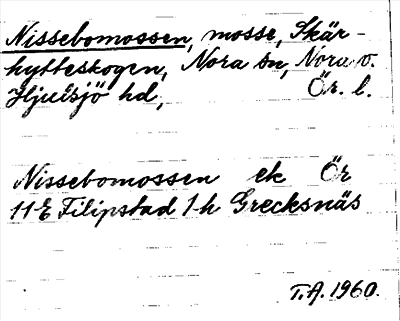 Nissebomossen, mosse, Skär-
hytteskogen, Nora sn, Nora o.
Hjulsjö hd, Ör. l.
Nissebomossen ek Ör
11E Filipstad 1-h Grecksnäs
T.A. 1960.